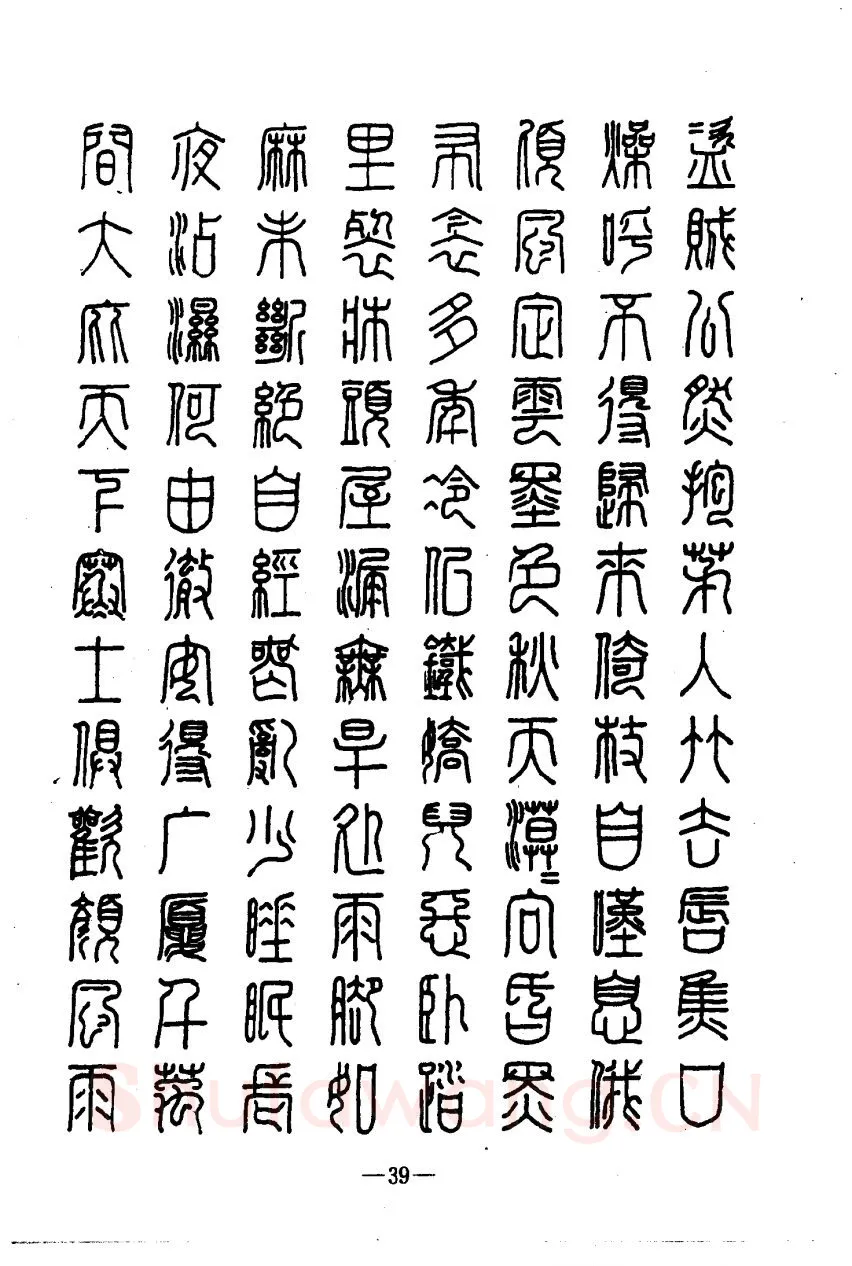 盜賊公然抱茅入竹去唇焦口
燥呼不得歸來倚杖自嘆息俄
頃風定雲墨色秋天漠=向昏黑
布衾多年冷似鐵嬌兒惡臥踏
里裂牀頭屋漏無旱処雨腳如
麻未斷絕自經喪亂少睡眠長
夜沾濕何由徹安得广廈千萬
間大庇天下寒士俱歡顏風雨
—39—
Shufawang.CN